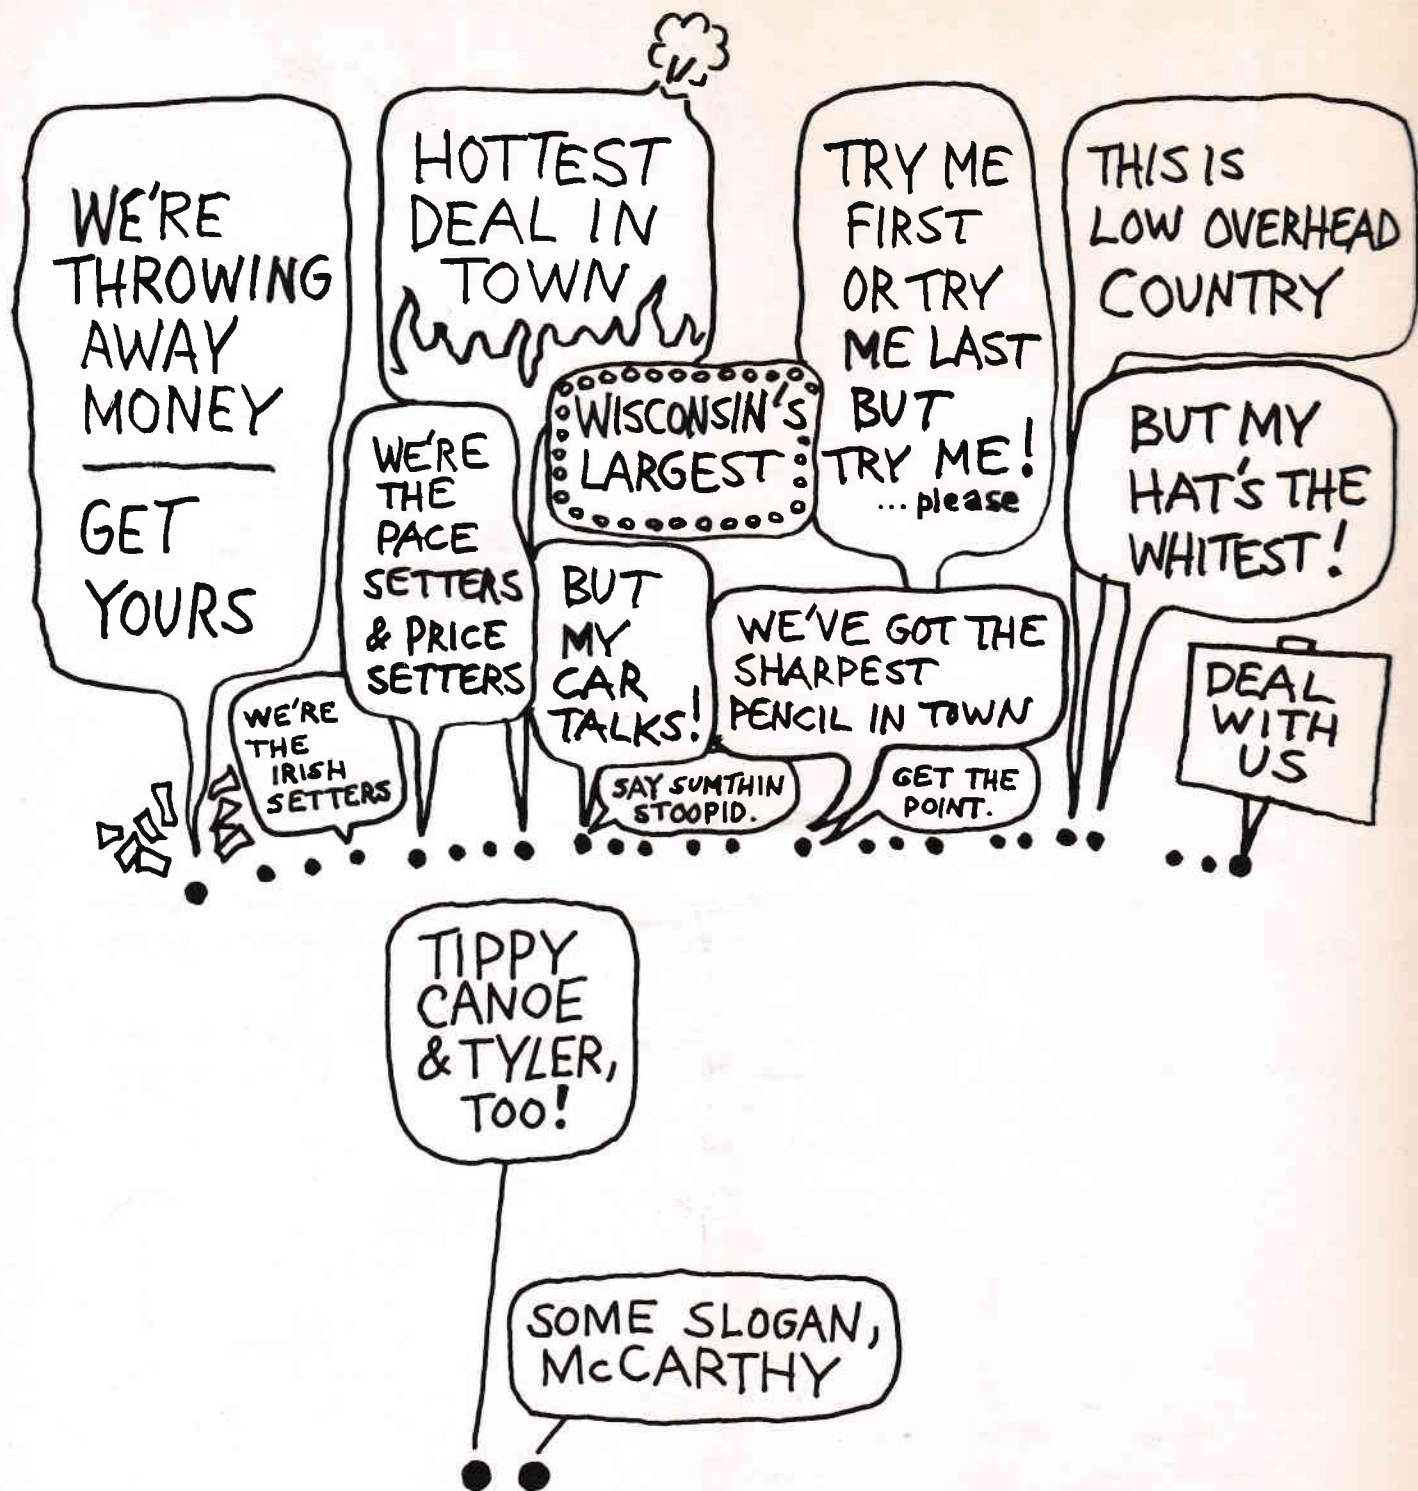 WE'RE
THROWING
AWAY
MONEY
GET
YOURS
HOTTEST
DEAL IN
TOWN
TRY ME
FIRST
OR TRY
ME LAST
BUT
TRY ME!
... please
THIS IS
LOW OVERHEAD
COUNTRY
WE'RE
THE
PACE
SETTERS
& PRICE
SETTERS
WISCONSIN'S
LARGEST
BUT MY
HAT'S THE
WHITEST!
WE'RE
THE
IRISH
SETTERS
BUT
MY
CAR
TALKS!
WE'VE GOT THE
SHARPEST
PENCIL IN TOWN
DEAL
WITH
US
SAY SUMTHIN
STOOPID.
GET THE
POINT.
TIPPY
CANOE
& TYLER,
TOO!
SOME SLOGAN,
McCARTHY